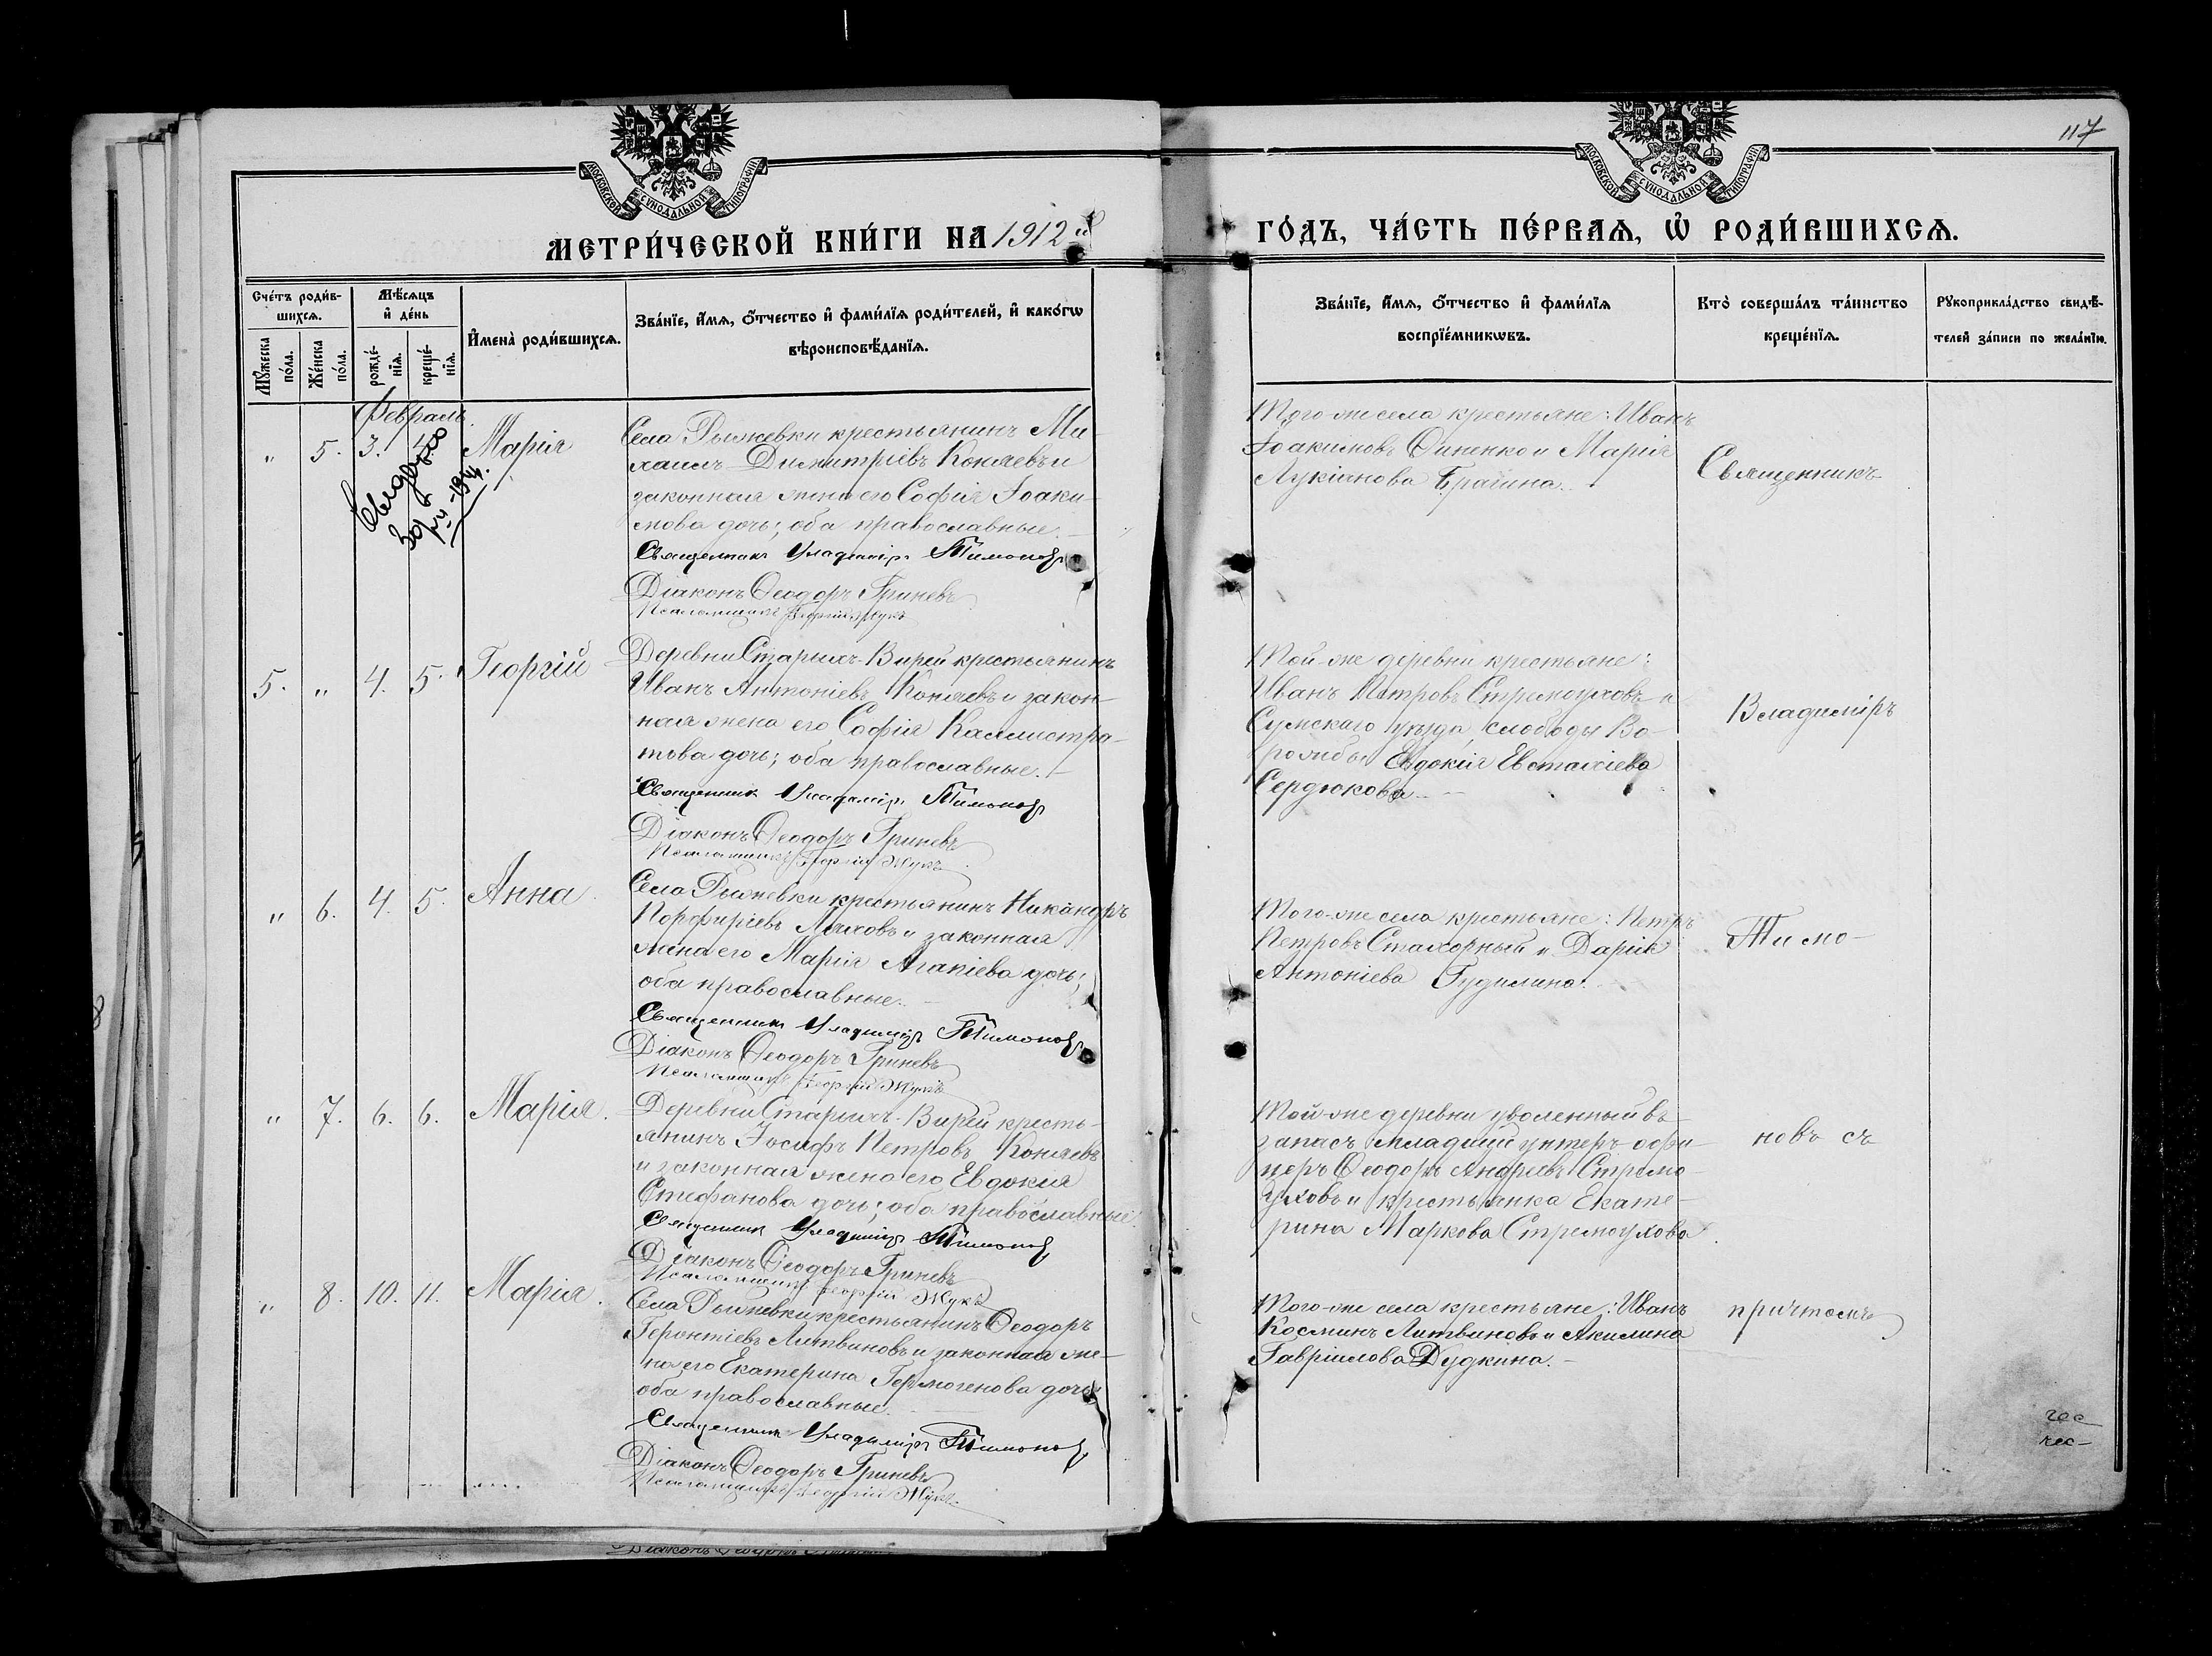 117
МОСКОВСКОЙ СѴНОДАЛЬНОЙ ТИПОГРАФІИ
МОСКОВСКОЙ СѴНОДАЛЬНОЙ ТИПОГРАФІИ
МЕТРИ́ЧЕСКОЙ КНИ́ГИ НА 1912й
ГО́ДЪ, ЧА́СТЬ ПЕ́РВАѦ, Ѡ҆ РОДИ́ВШИХСѦ.
Сче́тъ роди́в-
шихсѧ.
Мѣ́сѧцъ
и҆ де́нь
Мꙋ́жеска
по́ла.
Же́нска
по́ла.
рожде́-
нїѧ.
креще́-
нїѧ.
И҆мена̀ роди́вшихсѧ.
Зва́нїе, и҆́мѧ, ѻ҆́тчество и҆ фами́лїѧ роди́телей, и҆ како́гѡ
вѣроисповѣ́данїѧ.
Зва́нїе, и҆́мѧ, ѻ҆́тчество и҆ фами́лїѧ
воспрїе́мникѡвъ.
Кто̀ соверша́лъ та́инство
креще́нїѧ.
Рꙋкоприкла́дство свидѣ́-
телей за́писи по жела́нїю.
Февраль
" 5. 3. Марія
Села Рыжевки крестьянинъ Ми-
хаилъ Димитріевъ Коняевъ и
законная жена его Софія Іоаки-
мова дочь; оба православные.
Священникъ Владиміръ Тимоновъ
Діаконъ Ѳеодоръ Гриневъ
Псаломщикъ Георгій Жукъ
Того-же села крестьяне: Иванъ
Іоакимовъ Опенко и Марія
Лукіанова Брагина.
Священникъ
5. " 4. 5. Георгій
Деревни Старыхъ-Вирей крестьянинъ
Иванъ Антоніевъ Коняевъ и закон-
ная жена его Софія Каллистра-
това дочь; оба православные.
Священникъ Владиміръ Тимоновъ
Діаконъ Ѳеодоръ Гриневъ
Псаломщикъ Георгій Жукъ
Той-же деревни крестьяне:
Иванъ Петровъ Стремоуховъ и
Сумскаго уѣзда, слободы Во-
рожбы Евдокія Евстахіева
Сердюкова.
Владиміръ
" 6. 4. 5. Анна
Села Рыжевки крестьянинъ Никандръ
Порфиріевъ Маховъ и законная
жена его Марія Агапіева дочь;
оба православные.
Священникъ Владиміръ Тимоновъ
Діаконъ Ѳеодоръ Гриневъ
Псаломщикъ Георгій Жукъ
Того-же села крестьяне: Петръ
Петровъ Стахорный и Дарія
Антоніева Гудилина.
Тимо-
" 7. 6. 6. Марія.
Деревни Старыхъ-Вирей кресть-
янинъ Іосифъ Петровъ Коняевъ
и законная жена его Евдокія
Стефанова дочь; оба православные.
Священникъ Владиміръ Тимоновъ
Діаконъ Ѳеодоръ Гриневъ
Псаломщикъ Георгій Жукъ
Той-же деревни уволенный въ
запасъ младшій унтеръ-офи-
церъ Ѳеодоръ Андреевъ Стремо-
уховъ и крестьянка Екате-
рина Маркова Стремоухова.
новъ съ
" 8. 10. 11. Марія.
Села Рыжевки крестьянинъ Ѳеодоръ
Геронтіевъ Литвиновъ и законная же-
на его Екатерина Гермогенова дочь;
оба православные.
Священникъ Владиміръ Тимоновъ
Діаконъ Ѳеодоръ Гриневъ
Псаломщикъ Георгій Жукъ
Того-же села крестьяне: Иванъ
Косминъ Литвиновъ и Акилина
Гавріилова Дудкина.
причтомъ